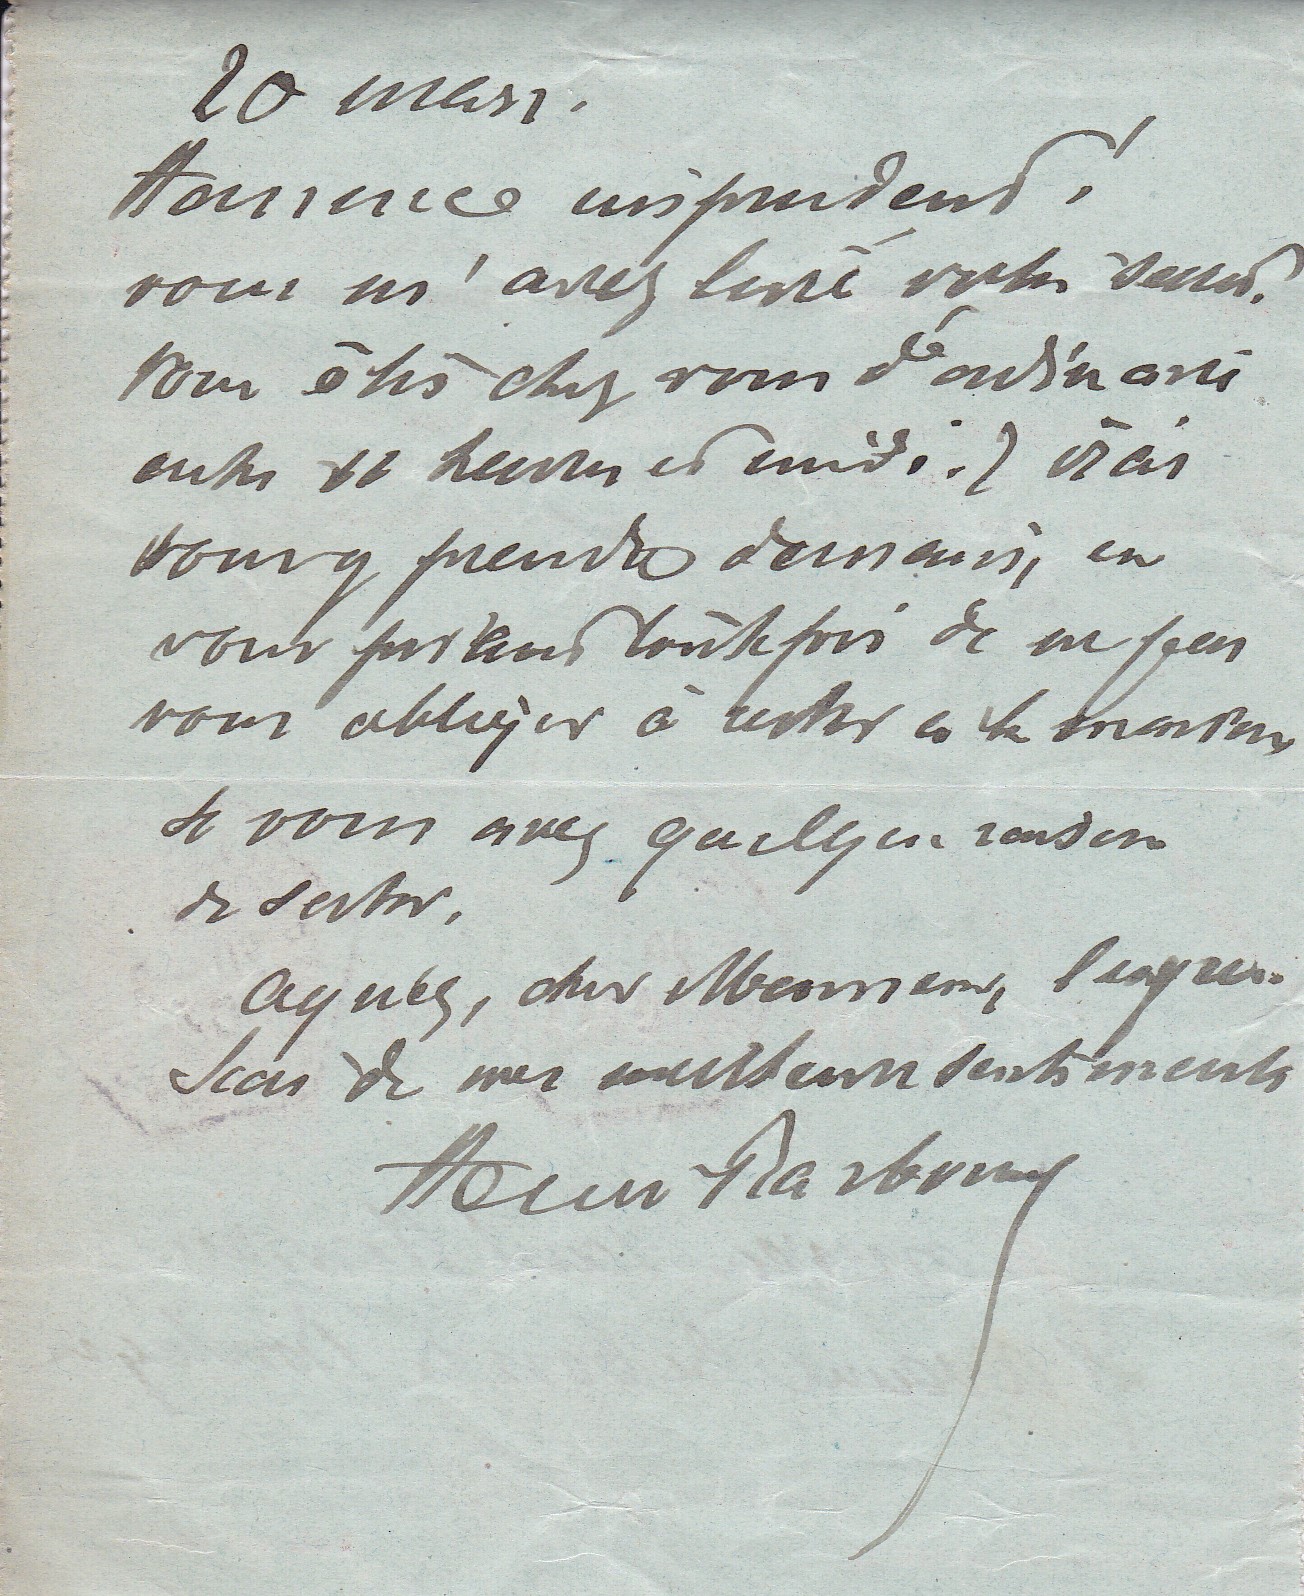 20 mars.
Homme imprudent !
vous m'avez livré votre secret.
Vous êtes chez vous d'ordinaire
entre 11 heures et midi. J'irai
vous y prendre demain, en
vous priant toutefois de ne pas
vous obliger à rester à la maison
si vous avez quelque raison
de sortir.
Agréez, cher Monsieur, l'expres-
sion de mes meilleurs sentiments
Henri Barbusse